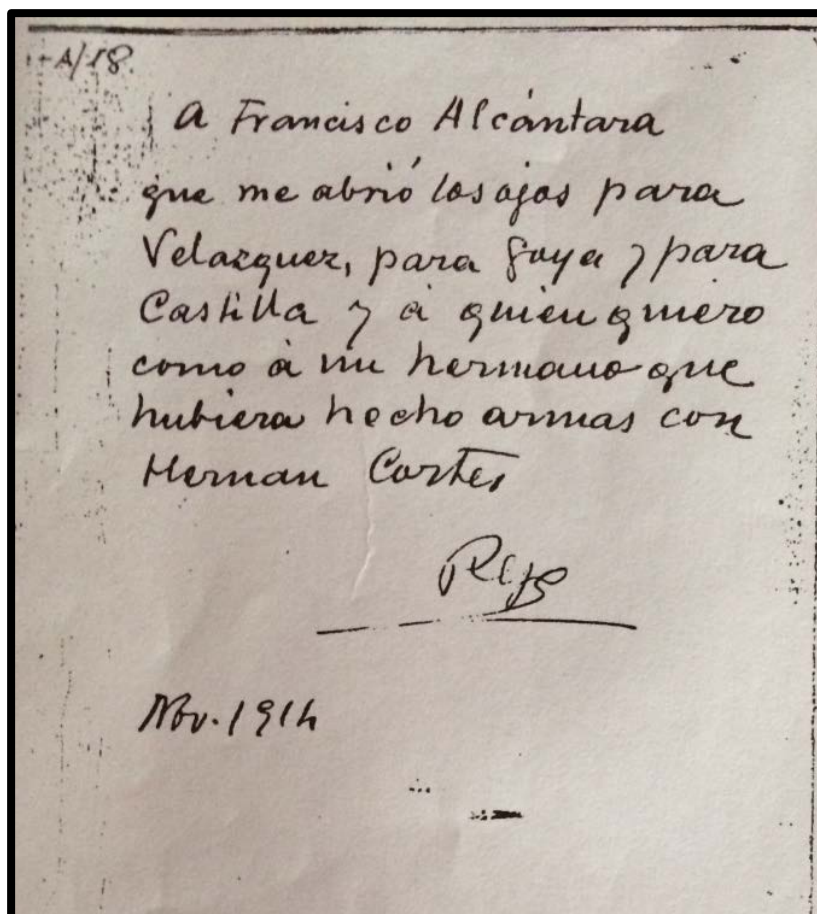 A/18
A Francisco Alcántara
que me abrió los ojos para
Velazquez, para Goya y para
Castilla y à quien quiero
como à un hermano que
hubiera hecho armas con
Hernan Cortes
Nov. 1914